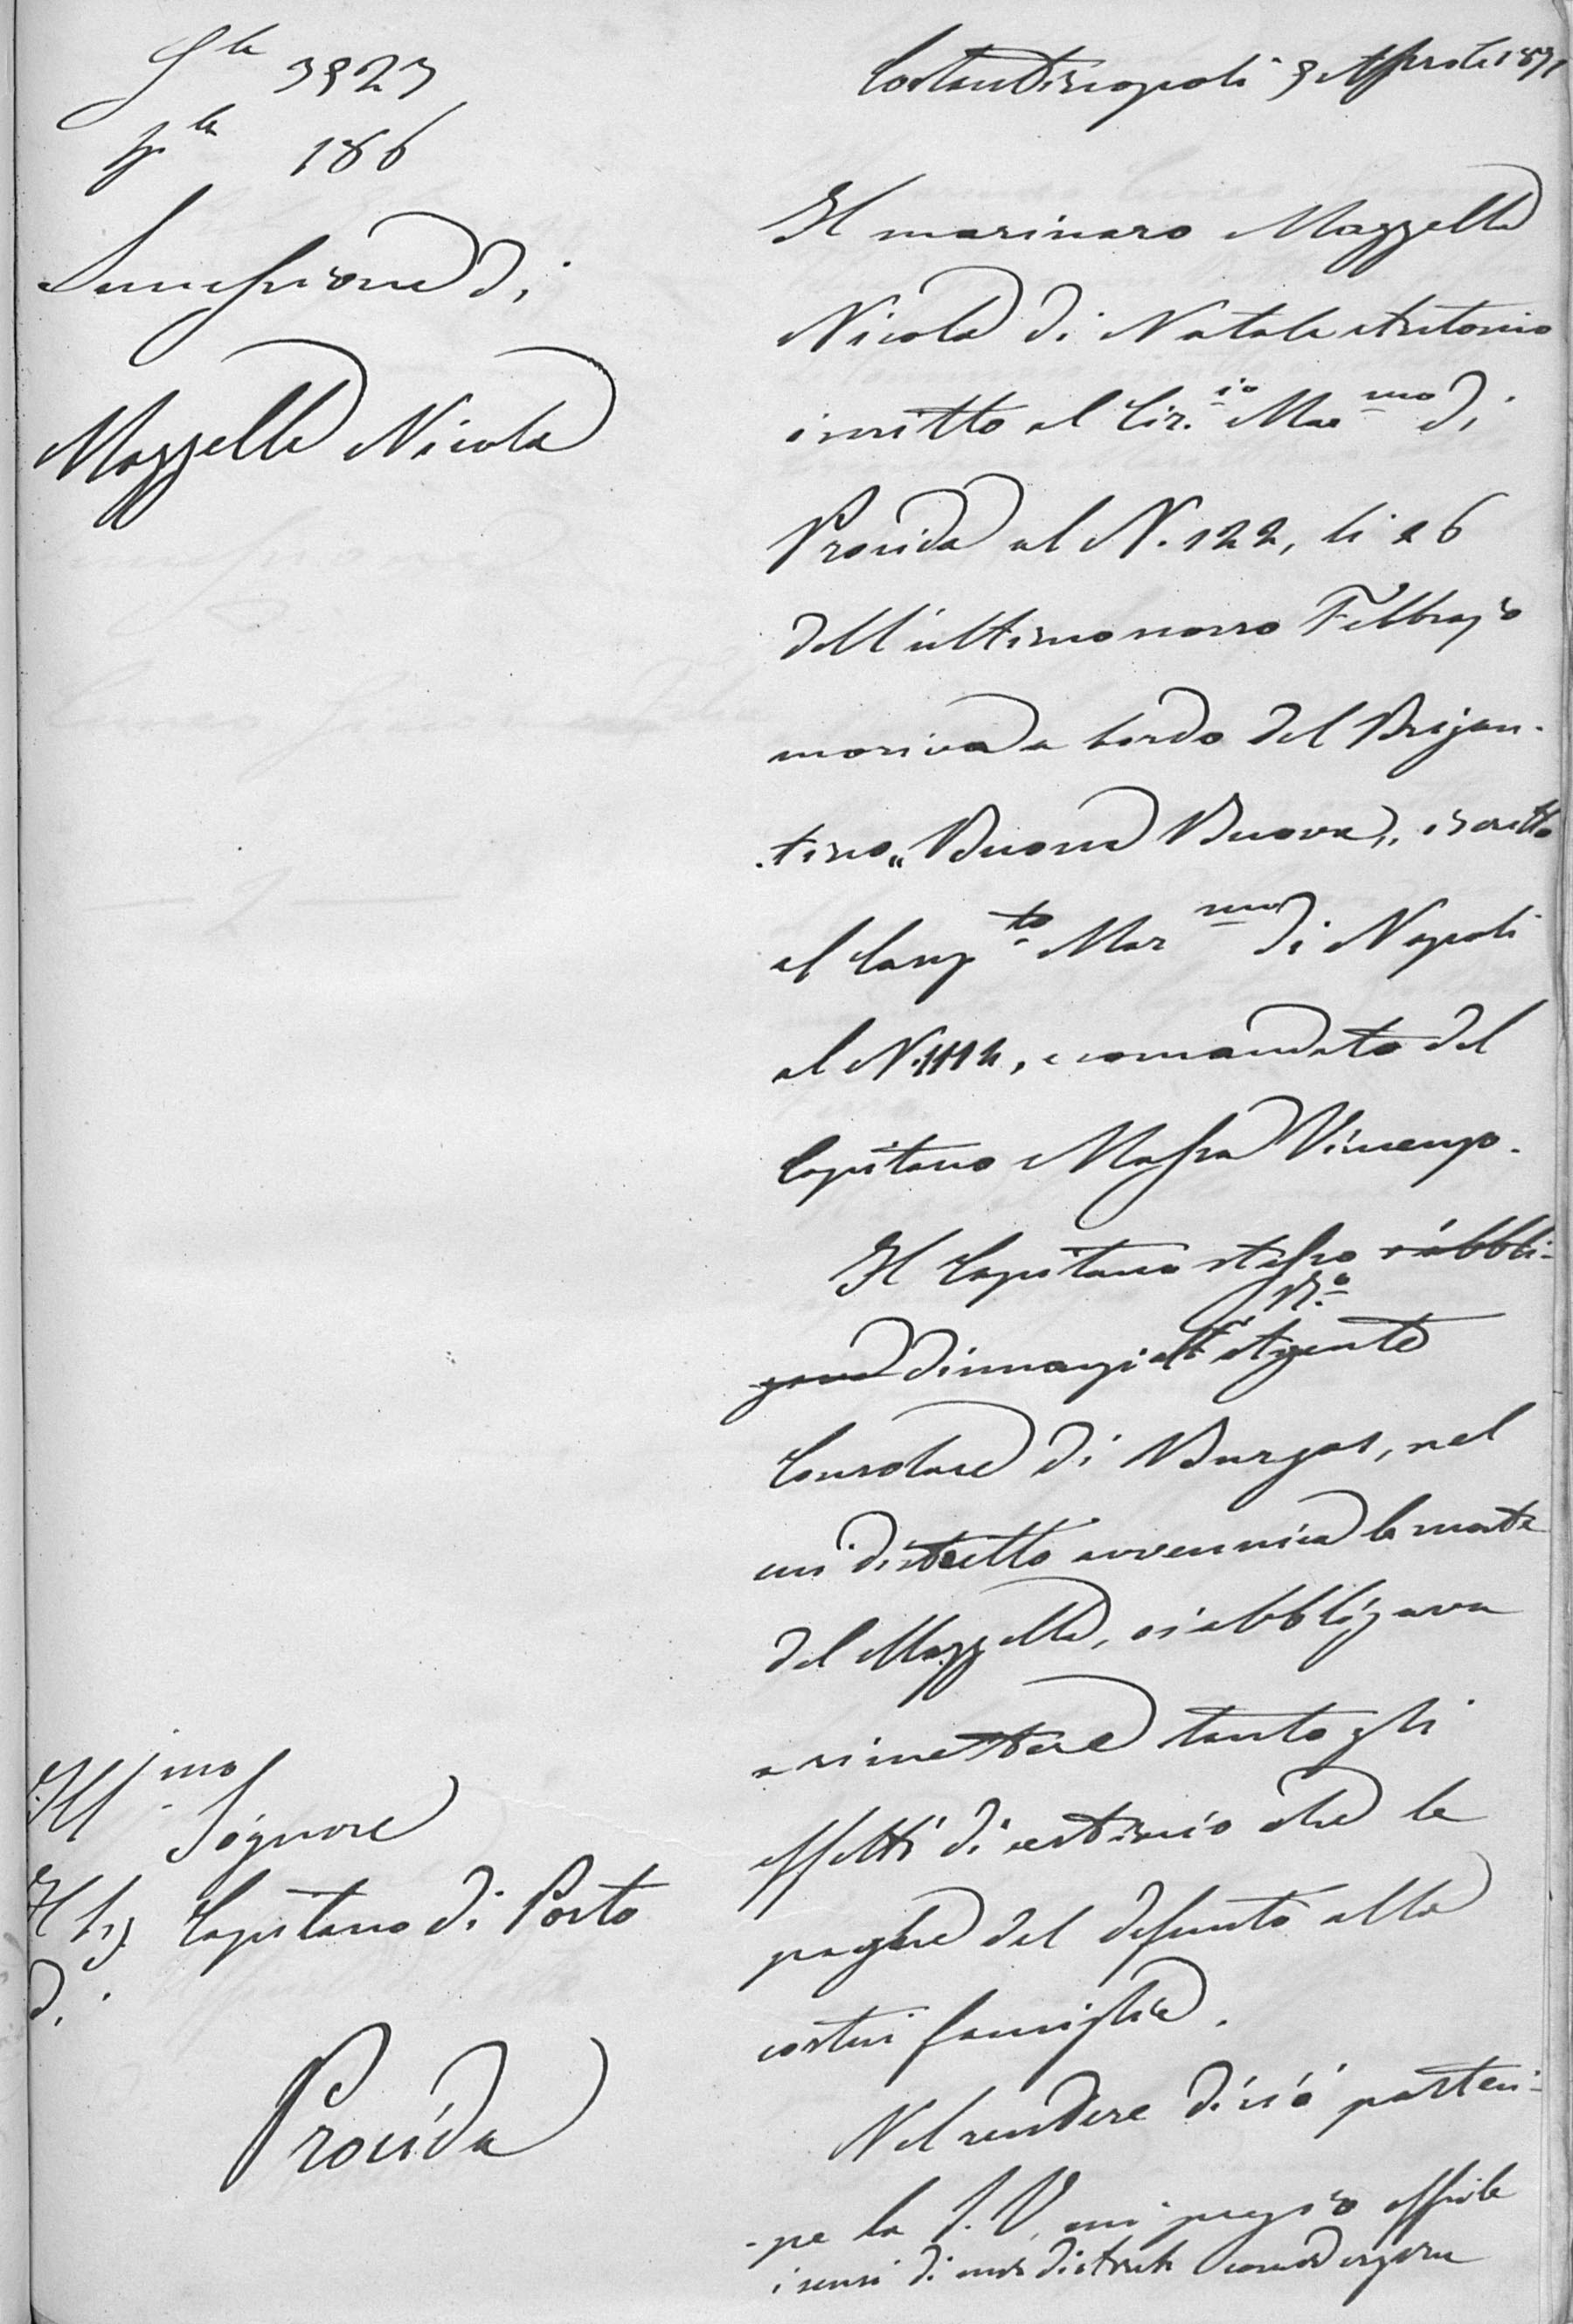 Gle 3923
Ple 186
Successione di
Mazzella Nicola
Costantinopoli 9 Aprile 1871
Il marinaro Mazzella
Nicola di Natale Antonio
inscritto al Cir.io Mar.mo di
Procida al N. 122, li 26
dell'ultimo scorso Febbrajo
moriva a bordo del Brigan-
-tino „Buona Nuova„ iscritto
al Comp.to Mar.mo di Napoli
al N. 1112, e comandato dal
Capitano Massa Vincenzo.
Il Capitano stesso s'obbli-
gava dinnanzi all' R.o Agente
Consolare di Burgas, nel
cui distretto avveniva la morte
del Mazzella, si obbligava
a rimettere tanto gli
effetti di vestiario che le
paghe del defunto alla
costui famiglia.
Nel rendere di ciò parteci-
-pe la S. V. mi pregio offrirle
i sensi di mia distinta considerazione
Ill.mo Signore
Il Sig. Capitano di Porto
di
Procida